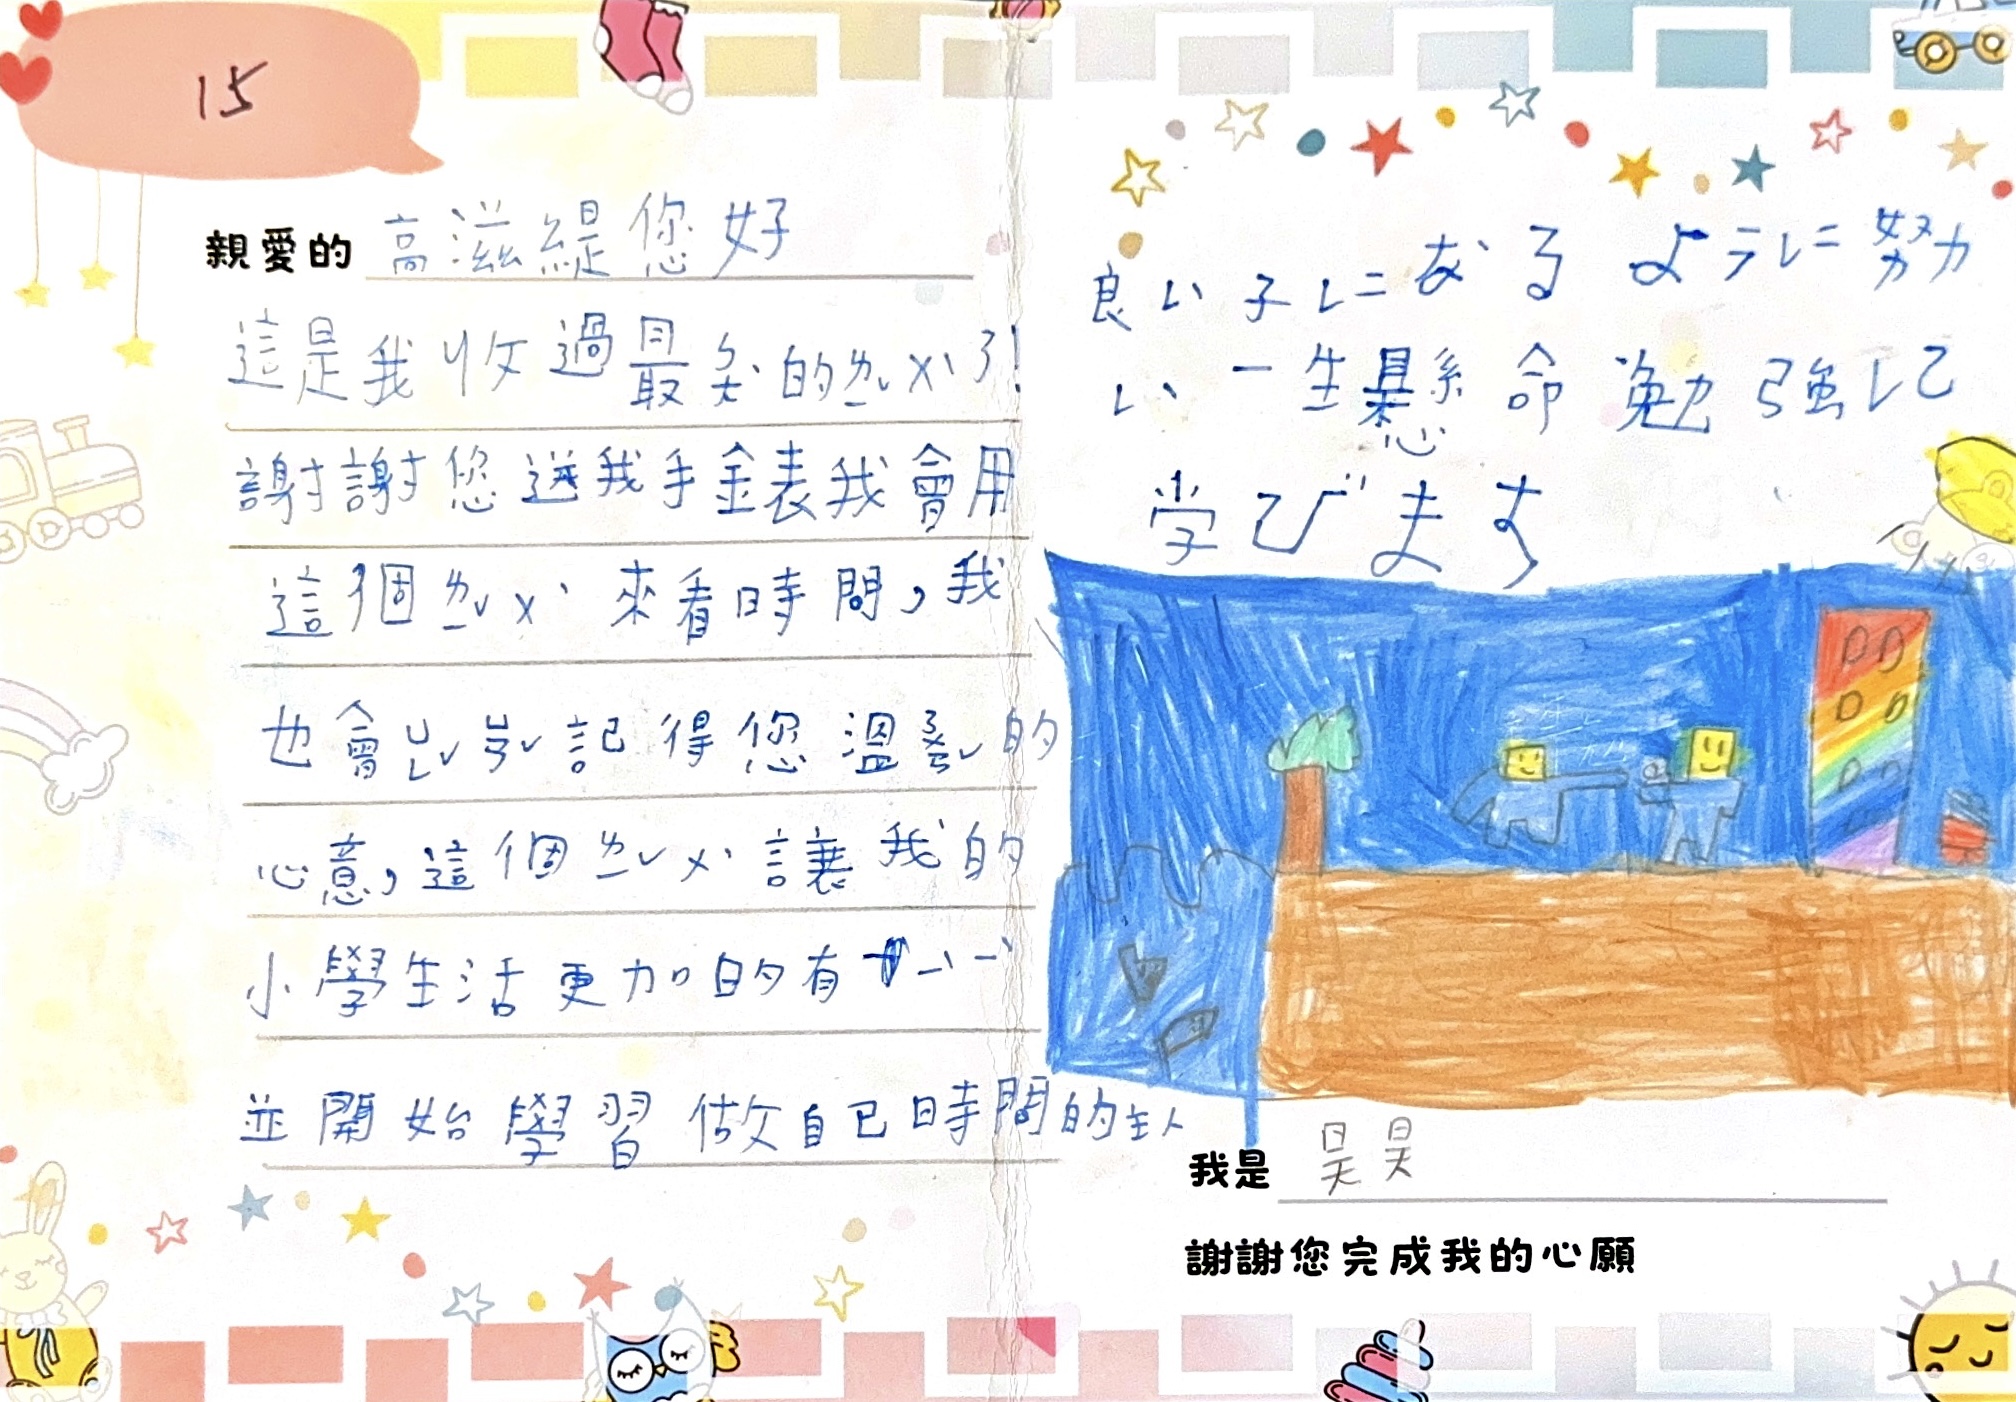 15
親愛的 高滋緹您好
這是我收過最ㄅㄤˋ的ㄌㄧˇㄨˋ了!
謝謝您送我手錶我會用
這個ㄌㄧˇㄨˋ來看時間,我
也會ㄩㄥˇㄩㄢˇ記得您溫ㄋㄨㄢˇ的
心意,這個ㄌㄧˇㄨˋ讓我的
小學生活更加的有
並開始學習做自己時間的主人
良い子になるように努
い一生懸命勉強して
学びます
我是 昊昊
謝謝您完成我的心願